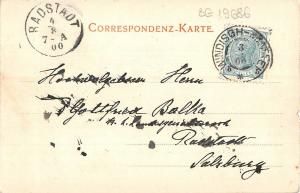 BG 19686
RADSTADT
4
8
7-A
00
CORRESPONDENZ-KARTE.
WINDISCH-
3
Hochwolgeboren Herrn
Gottfried Balka
k. k.
Radstadt
Salzburg